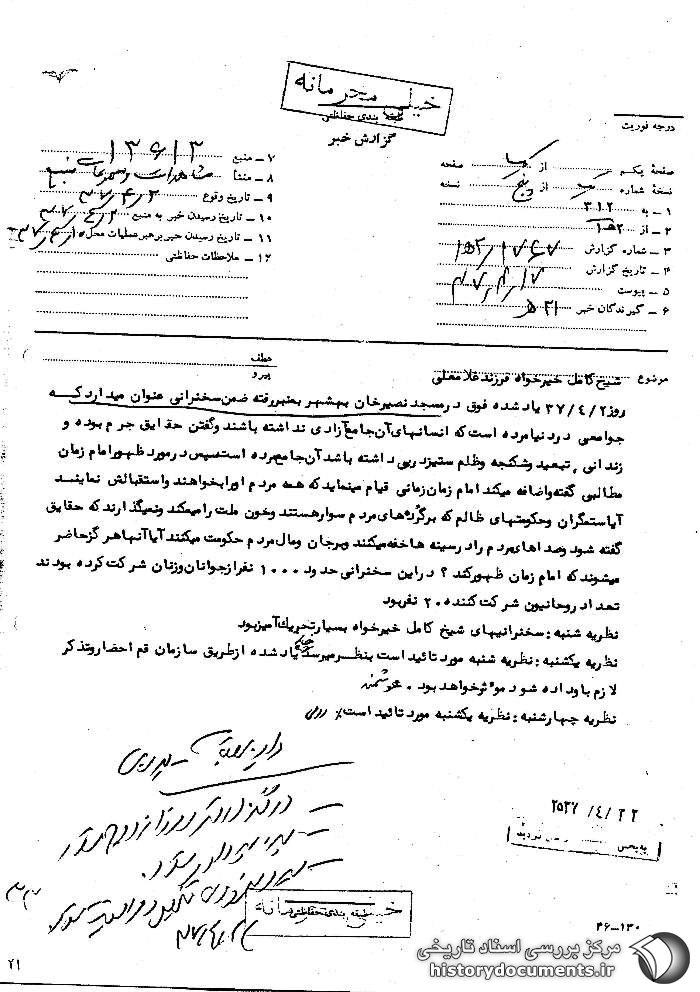 خیلی محرمانه
طبقه بندی حفاظتی
گزارش خبر
درجه فوریت
صفحه یکم از صفحه
نسخه شماره از پنج نسخه
۱ - به ۳۱۲
۲ - از ۱ه۲
۳ - شماره گزارش ۱ه۲/۱۷۶۷
۴ - تاریخ گزارش ۳۷/۴/۱۷
۵ - پیوست
۶ - گیرندگان خبر ۲۱ه
۷ - منبع ۱۳۶۱۳
۸ - منشأ مشاهدات و مسموعات منبع
۹ - تاریخ وقوع ۳۷/۴/۲
۱۰ - تاریخ رسیدن خبر به منبع ۳۷/۴/۲
۱۱ - تاریخ رسیدن خبر برهبر عملیات محل ۳۷/۴/۱۰
۱۲ - ملاحظات حفاظتی
موضوع شیخ کامل خیرخواه فرزند غلامعلی
عطف
پیرو
روز ۳۷/۴/۲ یاد شده فوق در مسجد نصیرخان بهشهر بمنبر رفته ضمن سخنرانی عنوان میدارد که
جوامعی در دنیا مرده است که انسانهای آن جامع آزادی نداشته باشند و گفتن حقایق جرم بوده و
زندانی، تبعید و شکنجه و ظلم ستیزدربی داشته باشد آن جامع مرده است سپس در مورد ظهور امام زمان
مطالبی گفته و اضافه میکند امام زمان زمانی قیام مینماید که همه مردم او را بخواهند و استقبالش نمایند
آیا ستمگران و حکومتهای ظالم که برگرده های مردم سوار هستند و خون ملت را میمکند و نمیگذارند که حقایق
گفته شود و صداهای مردم را در سینه ها خفه میکنند و برجان و مال مردم حکومت میکنند آیا آنها هرگز حاضر
میشوند که امام زمان ظهور کند ؟ در این سخنرانی حدود ۱۰۰۰ نفر از جوانان و زنان شرکت کرده بودند
تعداد روحانیون شرکت کننده ۲۰ نفر بود
نظریه شنبه : سخنرانیهای شیخ کامل خیرخواه بسیار تحریک آمیز بود
نظریه یکشنبه : نظریه شنبه مورد تائید است بنظر میرسد چنانچه یاد شده از طریق سازمان قم احضار و تذکر
لازم باو داده شود موثر خواهد بود .
نظریه چهارشنبه : نظریه یکشنبه مورد تائید است٪
۲۵۳۷/۴/۲۲
به بخش
۳۷/۴/۲۲
خیلی محرمانه
طبقه بندی حفاظتی
۴۶-۱۳۰
۲۱
مرکز بررسی اسناد تاریخی
historydocuments.ir